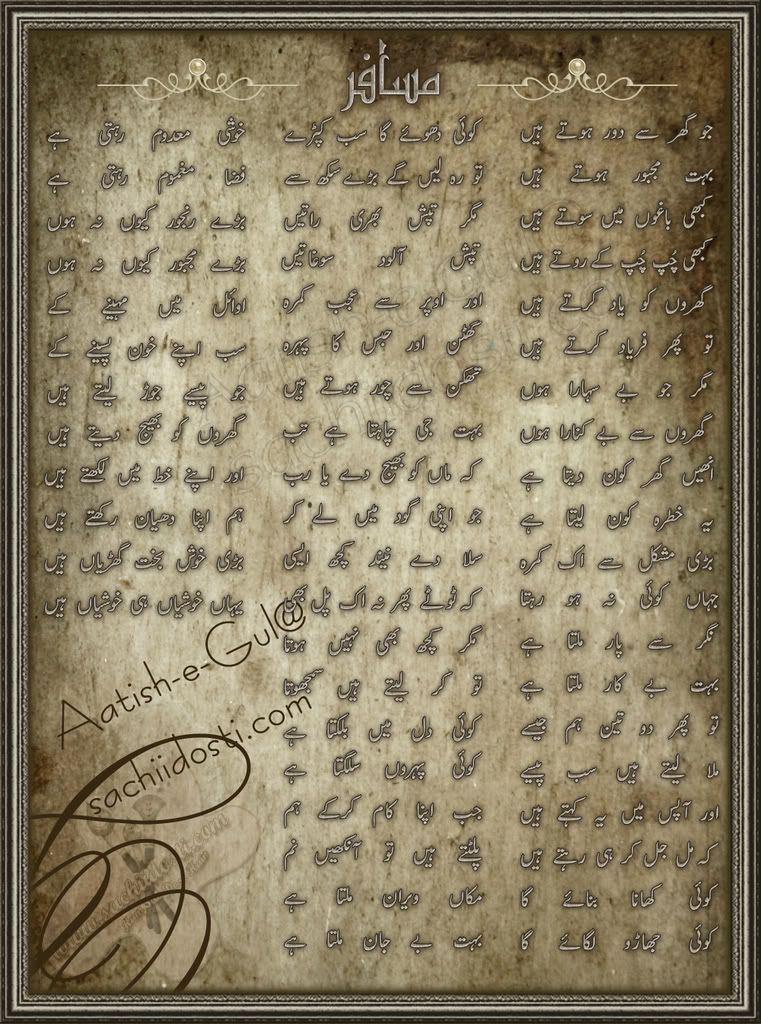 مسافر
جو گھر سے دور ہوتے ہیں
بہت مجبور ہوتے ہیں
کبھی باغوں میں سوتے ہیں
کبھی چُپ چُپ کے روتے ہیں
گھروں کو یاد کرتے ہیں
تو پھر فریاد کرتے ہیں
مگر جو بے سہارا ہوں
گھروں سے بے کنارا ہوں
انھیں گھر کون دیتا ہے
یہ خطرہ کون لیتا ہے
بڑی مشکل سے اک کمرہ
جہاں کوئی نہ ہو رہتا
نگر سے پار ملتا ہے
بہت بے کار ملتا ہے
تو پھر دو تین ہم جیسے
ملا لیتے ہیں سب پیسے
اور آپس میں یہ کہتے ہیں
کہ مل جل کر ہی رہتے ہیں
کوئی کھانا بنائے گا
کوئی جھاڑو لگائے گا
کوئی دھوئے گا سب کپڑے
تو رہ لیں گے بڑے سکھ سے
مگر تپش بھری راتیں
تپش آلود سوغاتیں
اور اوپر سے عجب کمرہ
گھٹن اور حبس کا پہرہ
تھکن سے چور ہوتے ہیں
بہت جی چاہتا ہے تب
کہ ماں کو بھیج دے یا رب
جو اپنی گود میں لے کر
سلا دے نیند کچھ ایسی
کہ ٹوٹے پھر نہ اک پل بھی
مگر کچھ بھی نہیں ہوتا
تو کر لیتے ہیں سمجھوتا
کوئی دل میں بلکتا ہے
کوئی پہروں سلگتا ہے
جب اپنا کام کرکے ہم
پلٹتے ہیں تو آنکھیں نم
مکاں ویران ملتا ہے
بہت بے جان ملتا ہے
خوشی معدوم رہتی ہے
فضا مغموم رہتی ہے
بڑے رنجور کیوں نہ ہوں
بڑے مجبور کیوں نہ ہوں
اوائل میں مہینے کے
سب اپنے خون پسینے کے
جو پیسے جوڑ لیتے ہیں
گھروں کو بھیج دیتے ہیں
اور اپنے خط میں لکھتے ہیں
ہم اپنا دھیان رکھتے ہیں
بڑی خوش بخت گھڑیاں ہیں
یہاں خوشیاں ہی خوشیاں ہیں
Aatish-e-Gul@
sachiidosti.com